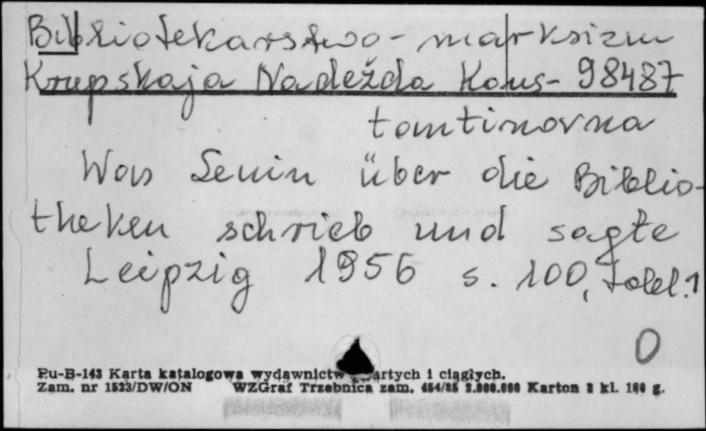 Bibliotekarstwo - marksizm
Krupskaja Nadežda Kons- 98487
tantinovna
Was Lenin über die Biblio-
theken schrieb und sagte
Leipzig 1956 s. 100, tabl. 1
0
Pu-B-143 Karta katalogowa wydawnictw zwartych i ciągłych.
Zam. nr 1523/DW/ON WZGraf Trzebnica zam. 454/85 2.000.000 Karton 2 kl. 180 g.